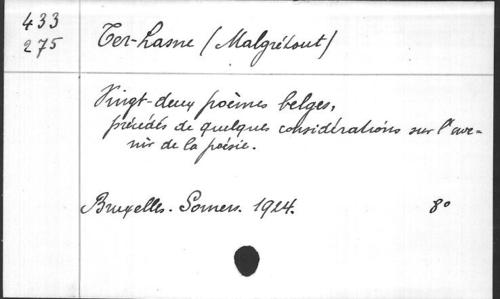 433
275
Ter-Lasne (Malgrétout)
Vingt-deux poèmes belges,
précédés de quelques considérations sur l'ave-
nir de la poésie.
Bruxelles. Somers. 1924. 8°